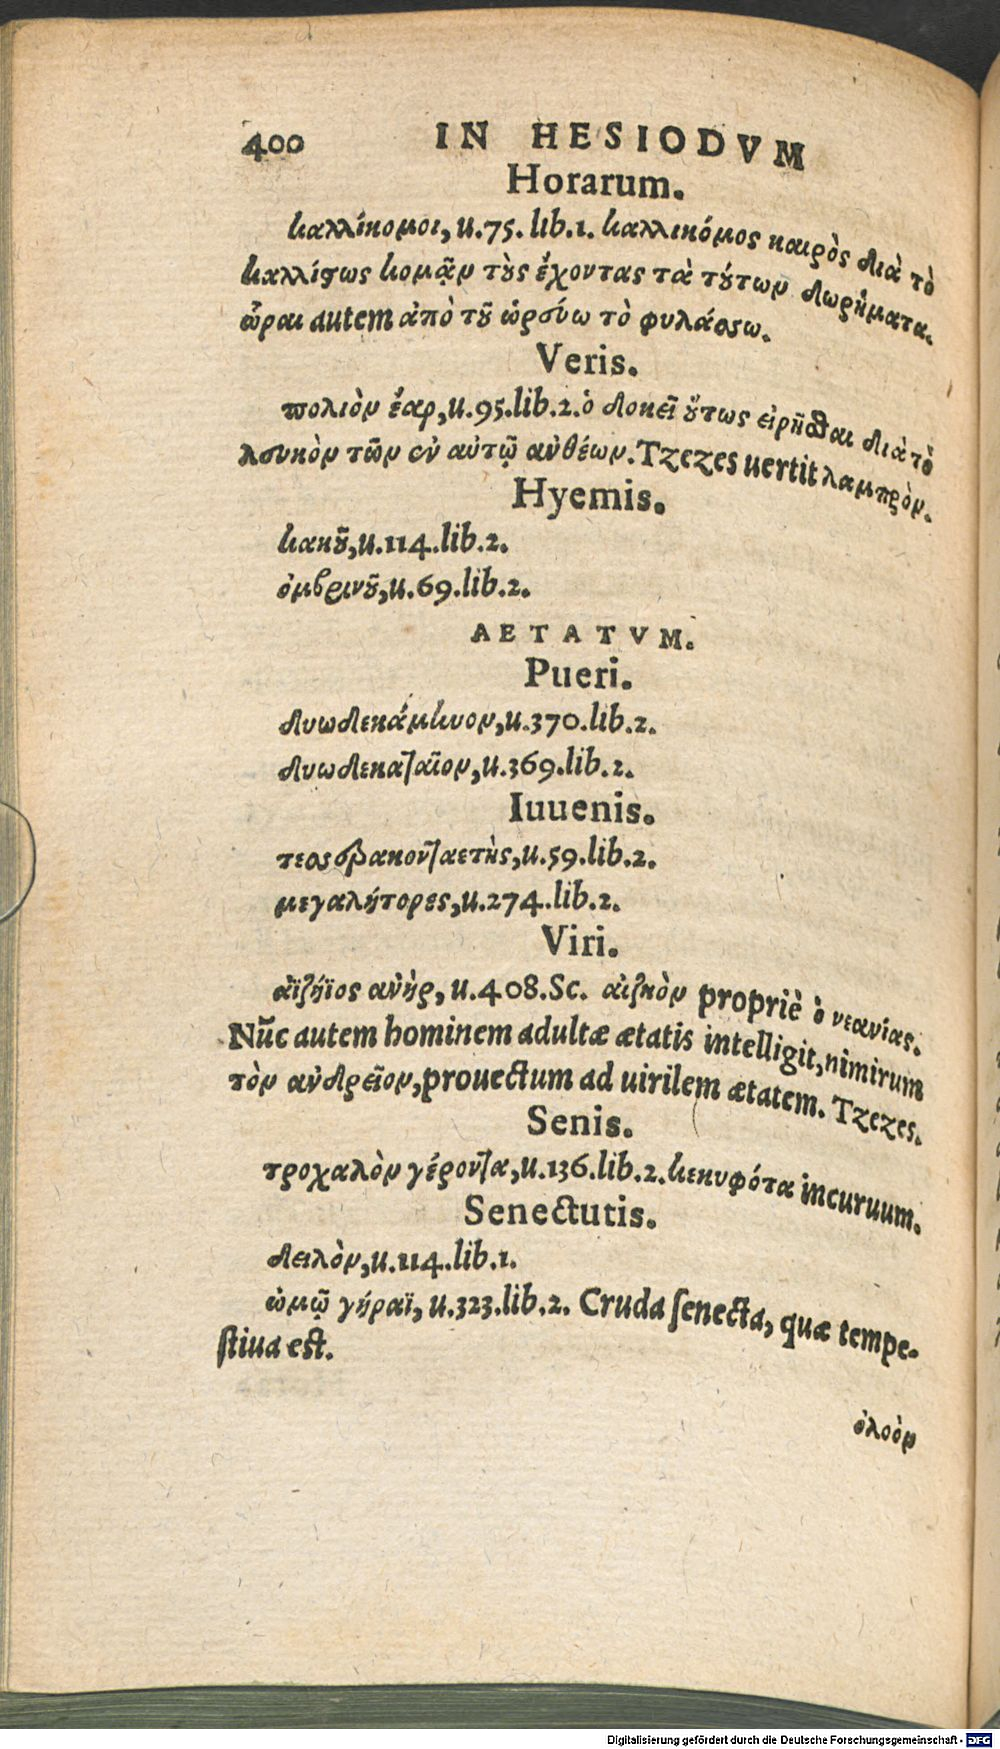 400 IN HESIODVM
Horarum.
καλλίκομοι, u.75. lib.1. καλλικόμος καιρὸς διὰ τὸ
καλλίστως κομᾷν τοὺς ἔχοντας τὰ τούτων δωρήματα.
ὧραι autem ἀπὸ τοῦ ὠρεύω τὸ φυλάσσω.
Veris.
πολιὸν ἔαρ, u.95.lib.2. ὁ δοκεῖ οὕτως εἰρῆσθαι διὰ τὸ
λευκὸν τῶν ἐν αὐτῷ ἀνθέων. Tzezes uertit λαμπρὸν.
Hyemis.
κακοῦ, u.114.lib.2.
ὀμβρινοῦ, u.69.lib.2.
AETATVM.
Pueri.
δυωδεκάμηνον, u.370.lib.2.
δυωδεκαταῖον, u.369.lib.2.
Iuuenis.
τεσσαρακονταετὴς, u.59.lib.2.
μεγαλήτορες, u.274.lib.2.
Viri.
ἀϊζήϊος ἀνὴρ, u.408.Sc. ἀιζηὸν propriè ὁ νεανίας.
Nūc autem hominem adultæ ætatis intelligit, nimirum
τὸν ἀνδρεῖον, prouectum ad uirilem ætatem. Tzezes.
Senis.
τροχαλὸν γέροντα, u.136.lib.2. κεκυφότα incuruum.
Senectutis.
δειλὸν, u.114.lib.1.
ὠμῷ γήραϊ, u.323.lib.2. Cruda senecta, quæ tempe-
stiua est.
ὀλοὸν
Digitalisierung gefördert durch die Deutsche Forschungsgemeinschaft - DFG